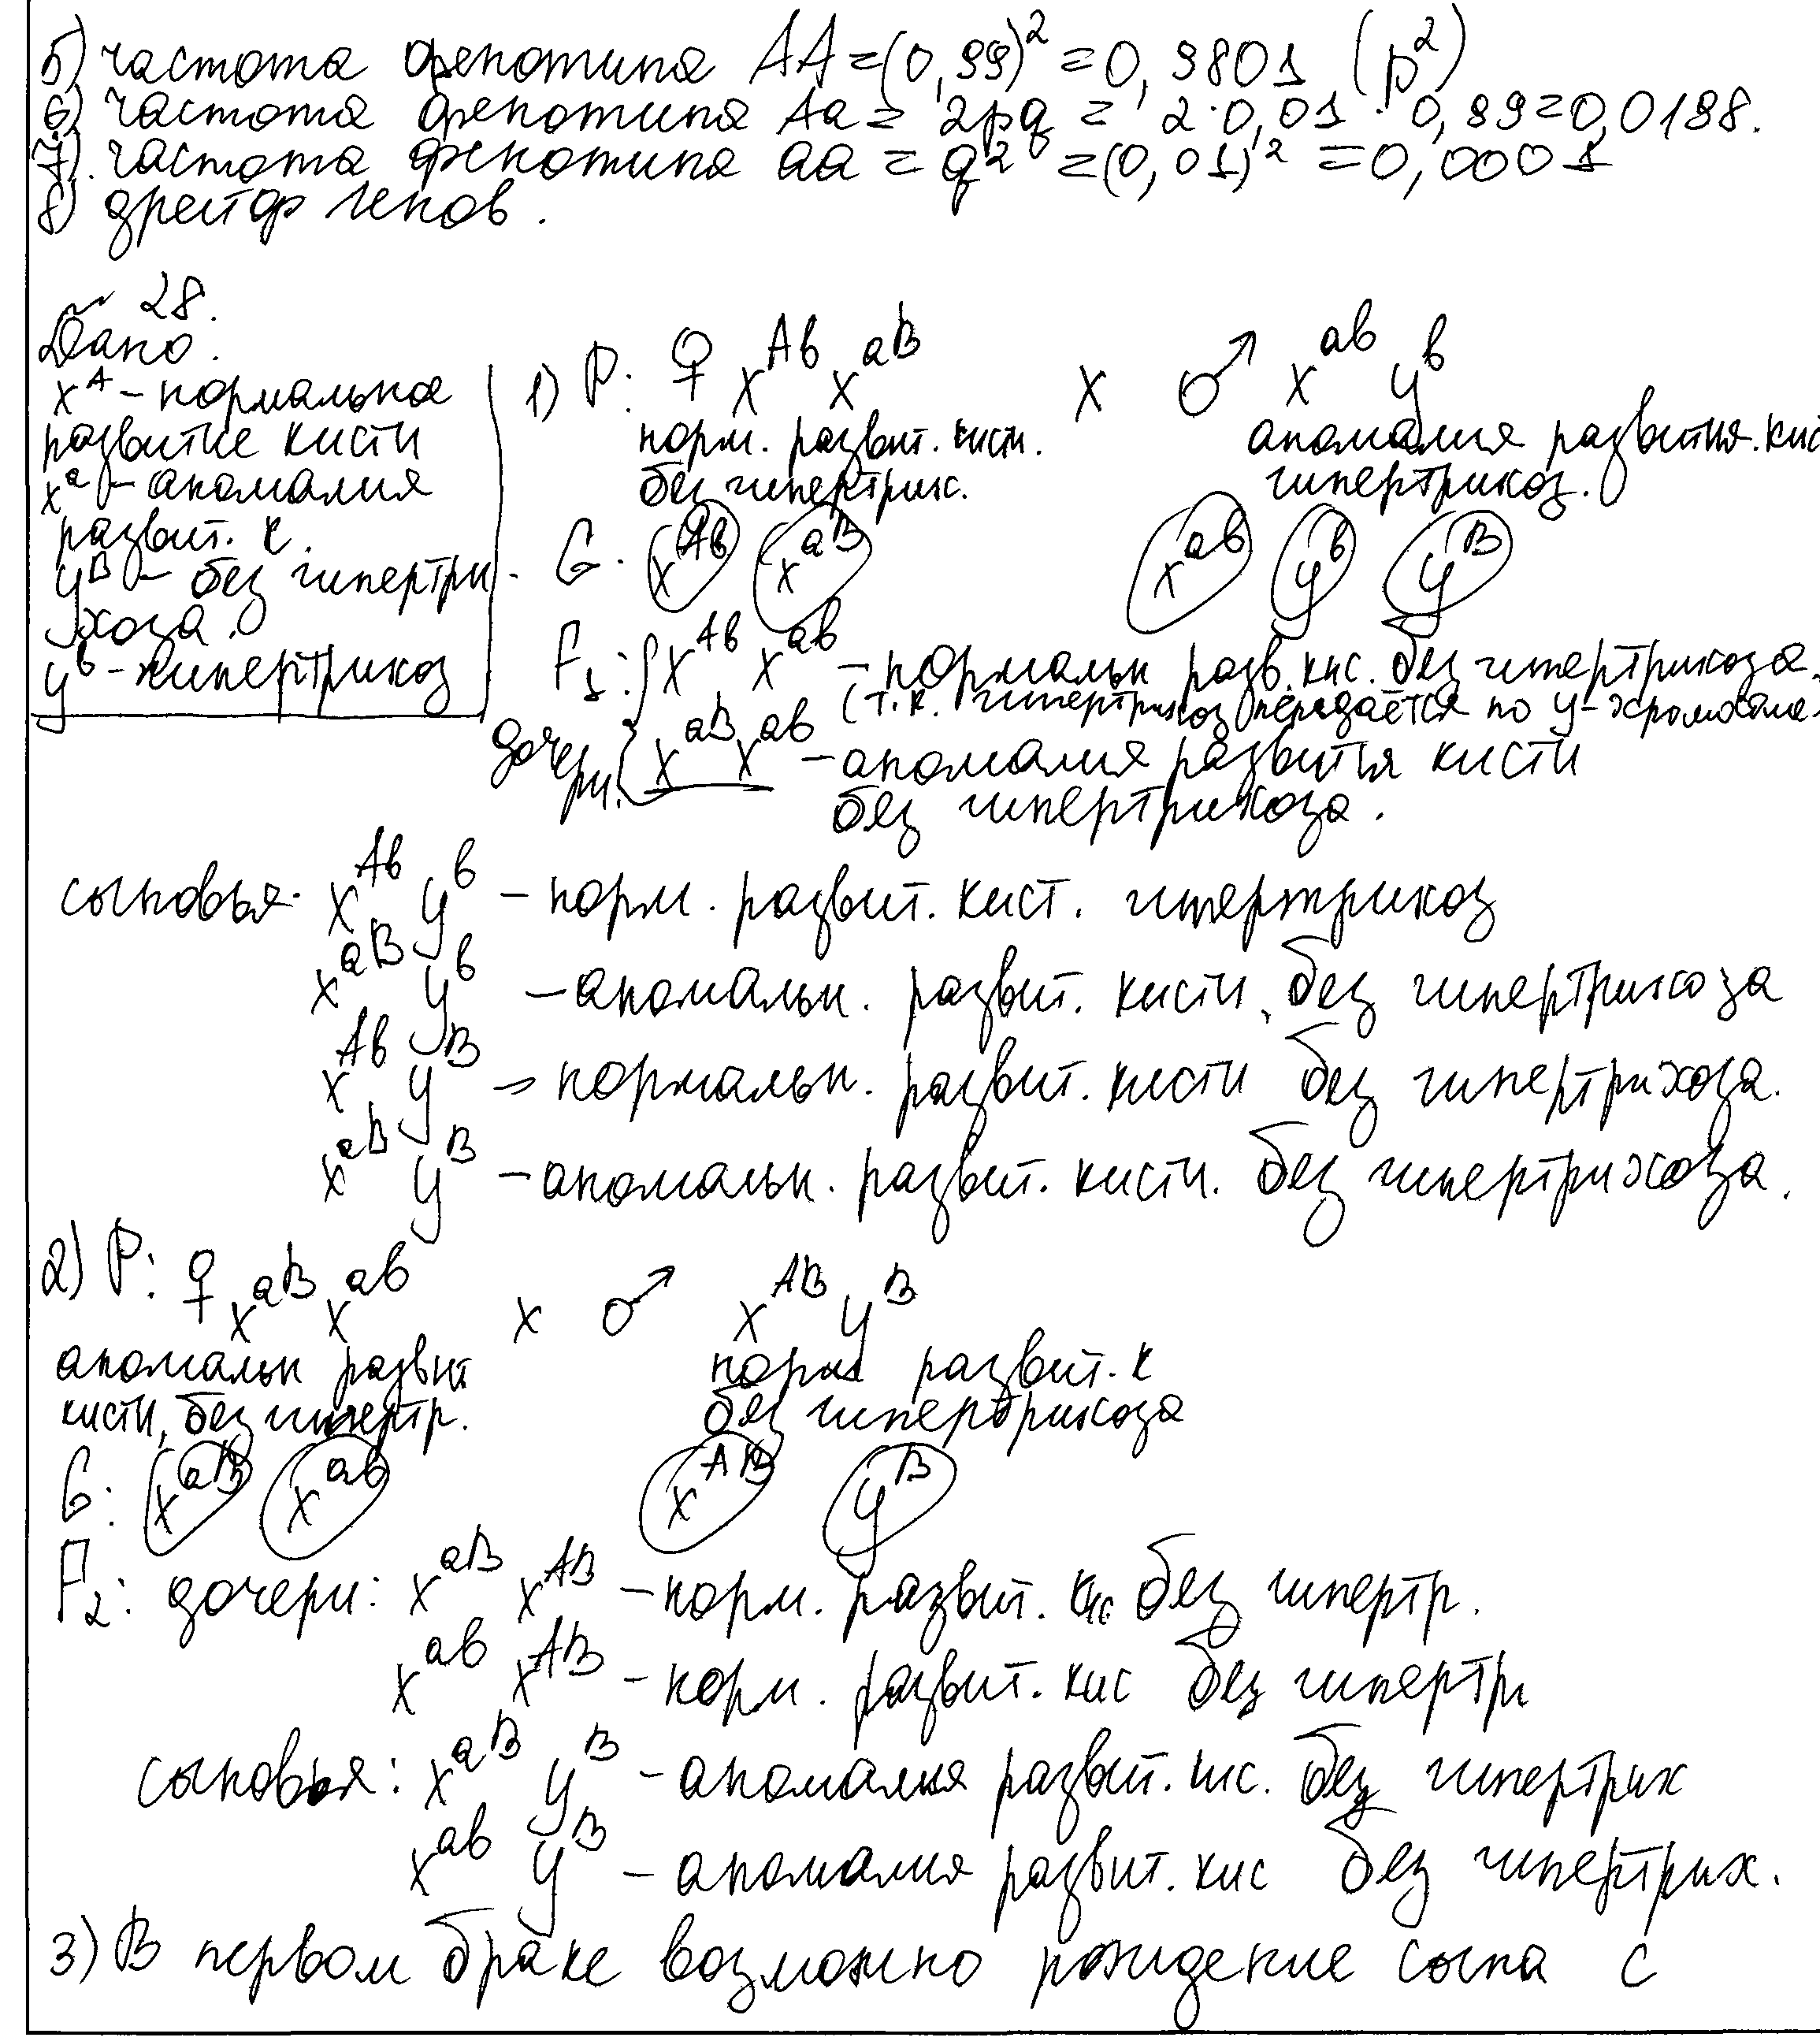 5) частота фенотипа AA = (0,99)² = 0,9801 (p²)
6) частота фенотипа Aa = 2pq = 2·0,01 · 0,99=0,0198.
7). частота фенотипа aa = q² = (0,01)² = 0,0001
8) дрейф генов.
~ 28.
Дано.
xᴬ – нормальное
развитие кисти
xᵃ – аномалия
развит. к.
yᴮ – без гипертри-
хоза.
yᵇ – гипертрихоз
1) P: ♀ X^Ab X^aB x ♂ X^ab y^b
норм. развит. кисти. аномалия развития. кис
без гипертрих. гипертрихоз.
G: X^Ab X^aB X^ab y^b y^B
F₁: X^Ab X^ab – нормальн разв. кис. без гипертрихоза.
(т.к. гипертрихоз передаётся по y-хромосоме
дочери. X^aB X^ab – аномалия развития кисти
без гипертрихоза.
сыновья. X^Ab y^b – норм. развит. кист. гипертрихоз
X^aB y^b – аномальн. развит. кисти, без гипертрихоза
X^Ab y^B – нормальн. развит. кисти без гипертрихоза.
X^aB y^B – аномальн. развит. кисти. без гипертрихоза.
2) P: ♀ X^aB X^ab x ♂ X^AB y^B
аномальн развит норм развит. к
кисти, без гипертр. без гипертрихоза
G: X^aB X^ab X^AB y^B
F₂: дочери: X^aB X^AB – норм. развит. кис без гипертр.
X^ab X^AB – норм. развит. кис без гипертри
сыновья: X^aB y^B – аномалия развит. кис. без гипертрих
X^ab y^B – аномалия развит. кис без гипертрих.
3) В первом браке возможно рождение сына с